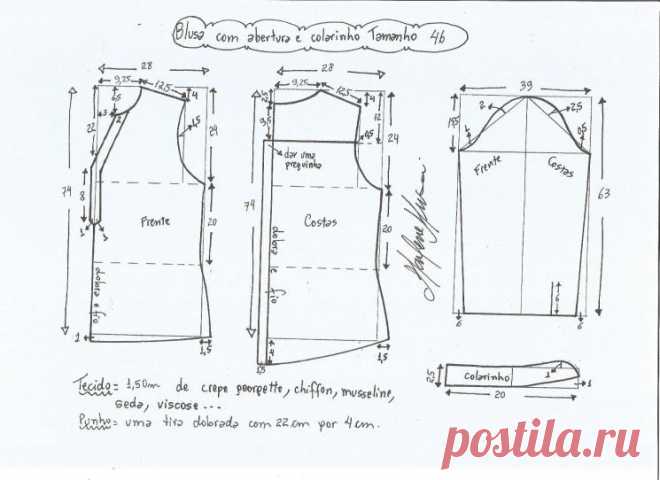 Blusa com abertura e colarinho Tamanho 46
28
9,25
12,5
6,5
4
3
2
22
1,5
24
74
8
Frente
20
1
1
dobra e fio
1
1,5
28
9,25
12,5
2,5
4
12
9,5
0,5
24
dar uma
preguinha
74
Costas
20
dobra e fio
1,5
1,5
39
2
2,5
15,5
1
0,5
Frente
Costas
63
6
6
6
2,5
colarinho
1
1
20
Tecido = 1,50m de crepe georgette, chiffon, musseline,
seda, viscose ...
Punho = uma tira dobrada com 22 cm por 4 cm.
postila.ru